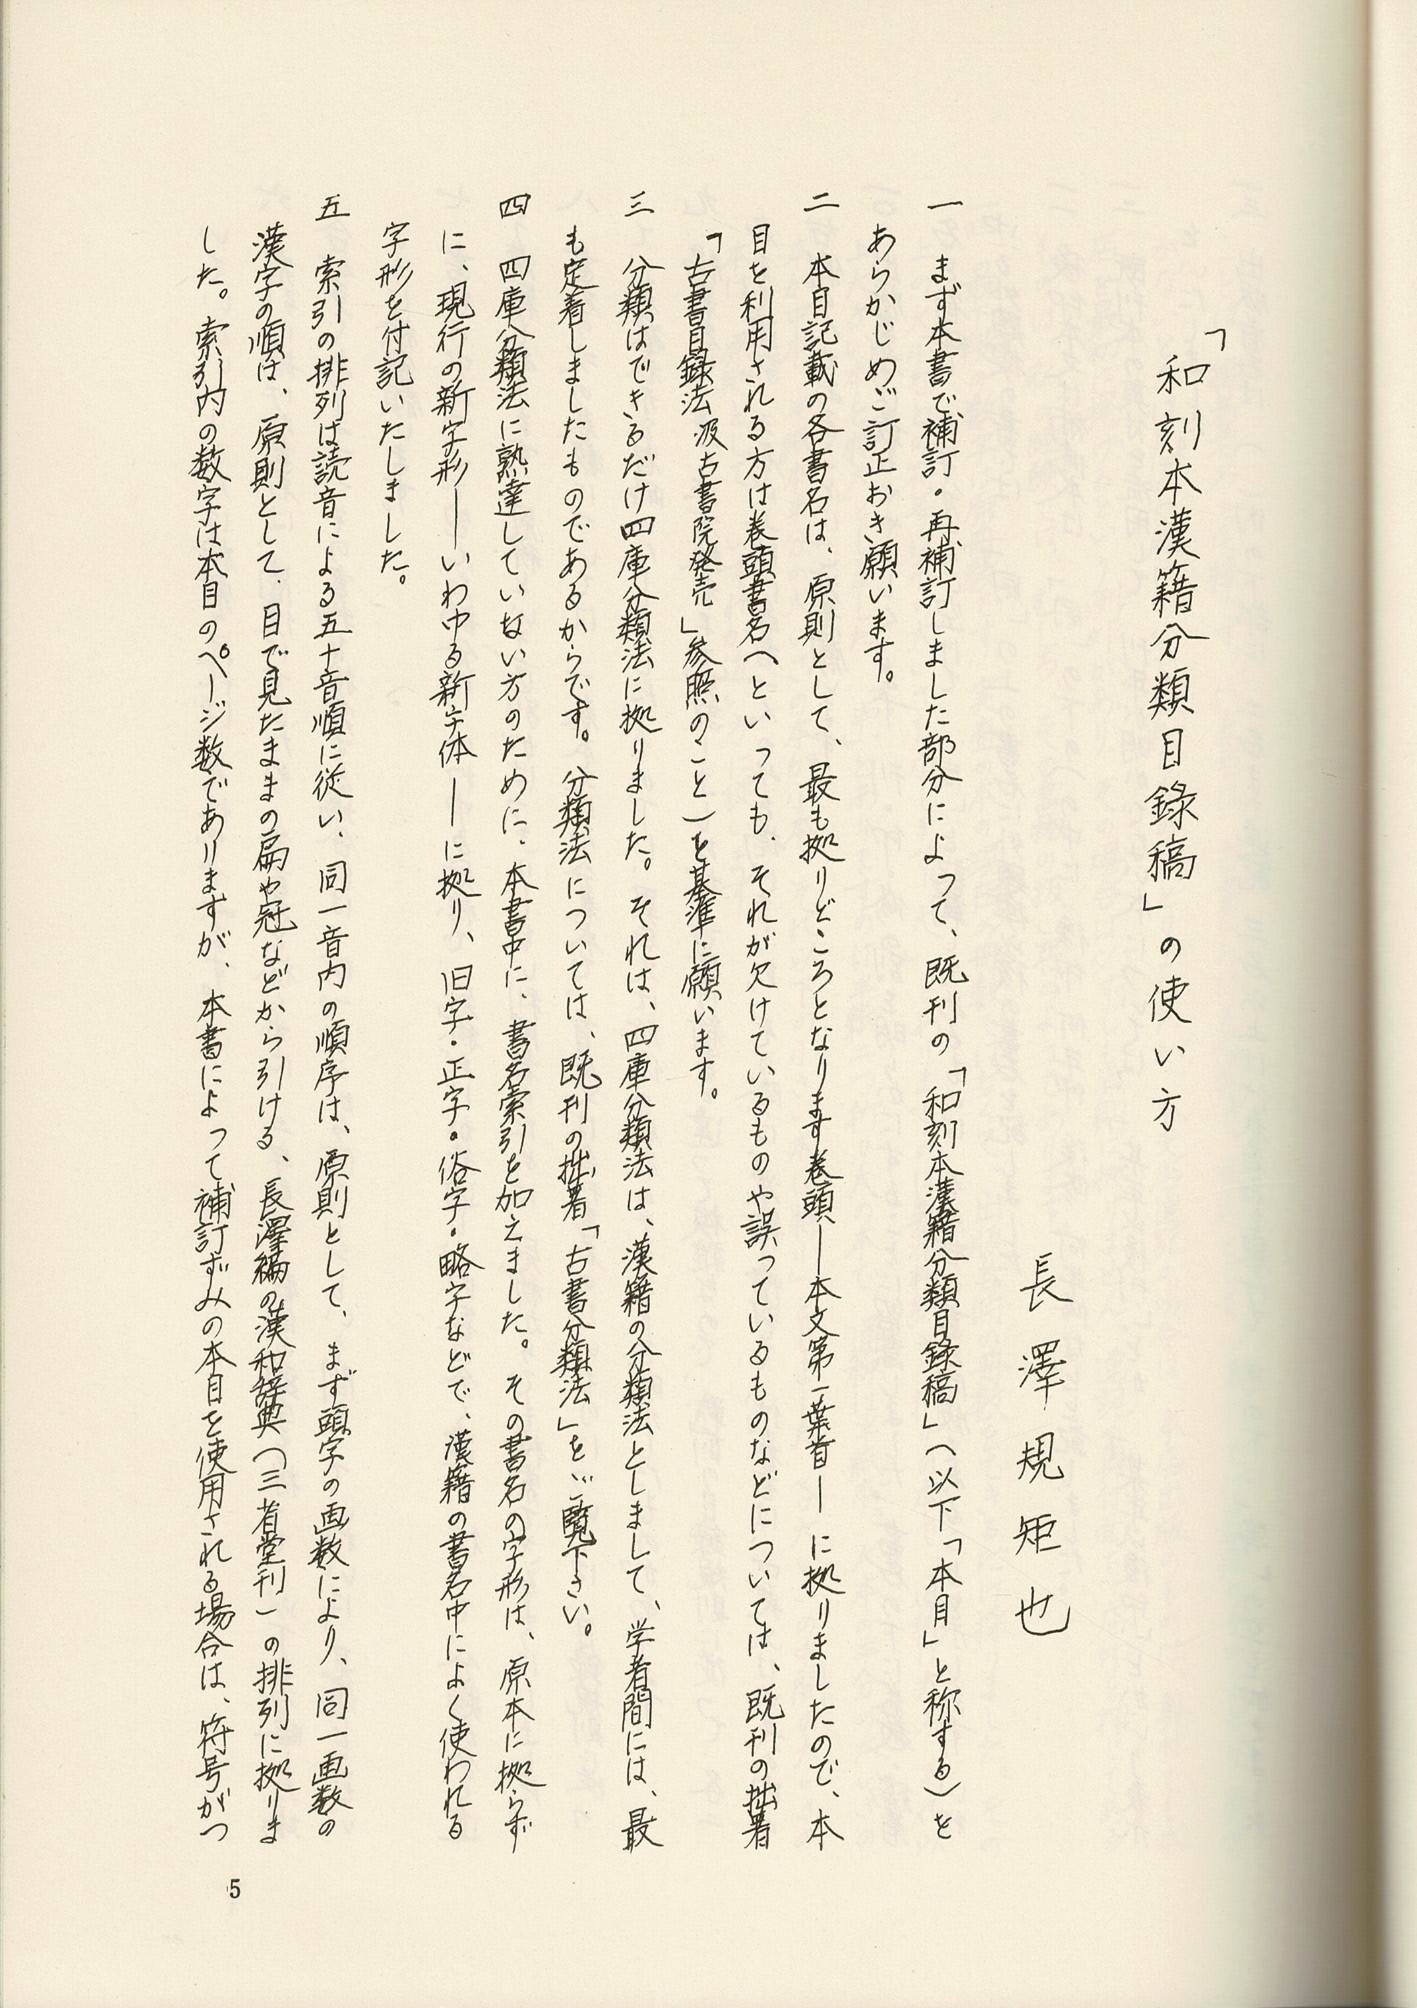 「和刻本漢籍分類目錄稿」の使い方
長澤規矩也
一　まず本書で補訂・再補訂しました部分によって、既刊の「和刻本漢籍分類目録稿」（以下「本目」と称する）を
あらかじめご訂正おき願います。
二　本目記載の各書名は、原則として、最も拠りどころとなります巻頭―本文第一葉首―に拠りましたので、本
目を利用される方は巻頭書名（といっても、それが欠けているものや誤っているものなどについては、既刊の拙著
「古書目録法　汲古書院発売」参照のこと）を基準に願います。
三　分類はできるだけ四庫分類法に拠りました。それは、四庫分類法は、漢籍の分類法としまして、学者間には、最
も定着しましたものであるからです。分類法については、既刊の拙著「古書分類法」をご覧下さい。
四　四庫分類法に熟達していない方のために、本書中に、書名索引を加えました。その書名の字形は、原本に拠らず
に、現行の新字形―いわゆる新字体―に拠り、旧字・正字・俗字・略字などで、漢籍の書名中によく使われる
字形を付記いたしました。
五　索引の排列は読音による五十音順に従い、同一音内の順序は、原則として、まず頭字の画数により、同一画数の
漢字の順は、原則として、目で見たままの扁や冠などから引ける、長澤編の漢和辞典（三省堂刊）の排列に拠りま
した。索引内の数字は本目のページ数でありますが、本書によって補訂ずみの本目を使用される場合は、符号がつ
5